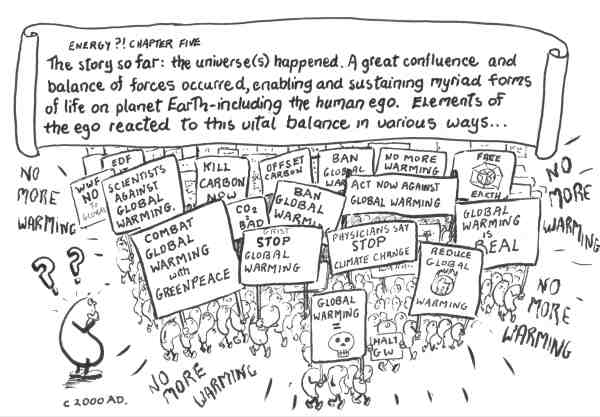 ENERGY?! CHAPTER FIVE
The story so far: the universe(s) happened. A great confluence and
balance of forces occurred, enabling and sustaining myriad forms
of life on planet EarTh-including the human ego. Elements of
the ego reacted to this vital balance in various ways...
NO
MORE
WARMING
WWF
NO
GLOBAL
EDF
SCIENTISTS
AGAINST
GLOBAL
WARMING.
KILL
CARBON
NOW
OFFSET
CARBON
BAN
GLOBAL
WAR
NO MORE
WARMING
FREE
EARTH
NO
MORE
WARMING
CO2
=
BAD
BAN
GLOBAL
WARMIN
ACT NOW AGAINST
GLOBAL WARMING
GLOBAL
WARMING
IS
REAL
COMBAT
GLOBAL
WARMING
with
GREENPEACE
GRIST
STOP
GLOBAL
WARMING
PHYSICIANS SAY
STOP
CLIMATE CHANGE
REDUCE
GLOBAL
WARMING
? ?
NO
MORE
WARMING
GLOBAL
WARMING
=
HALT
GW
NO
MORE
WARMING
c 2000 AD.